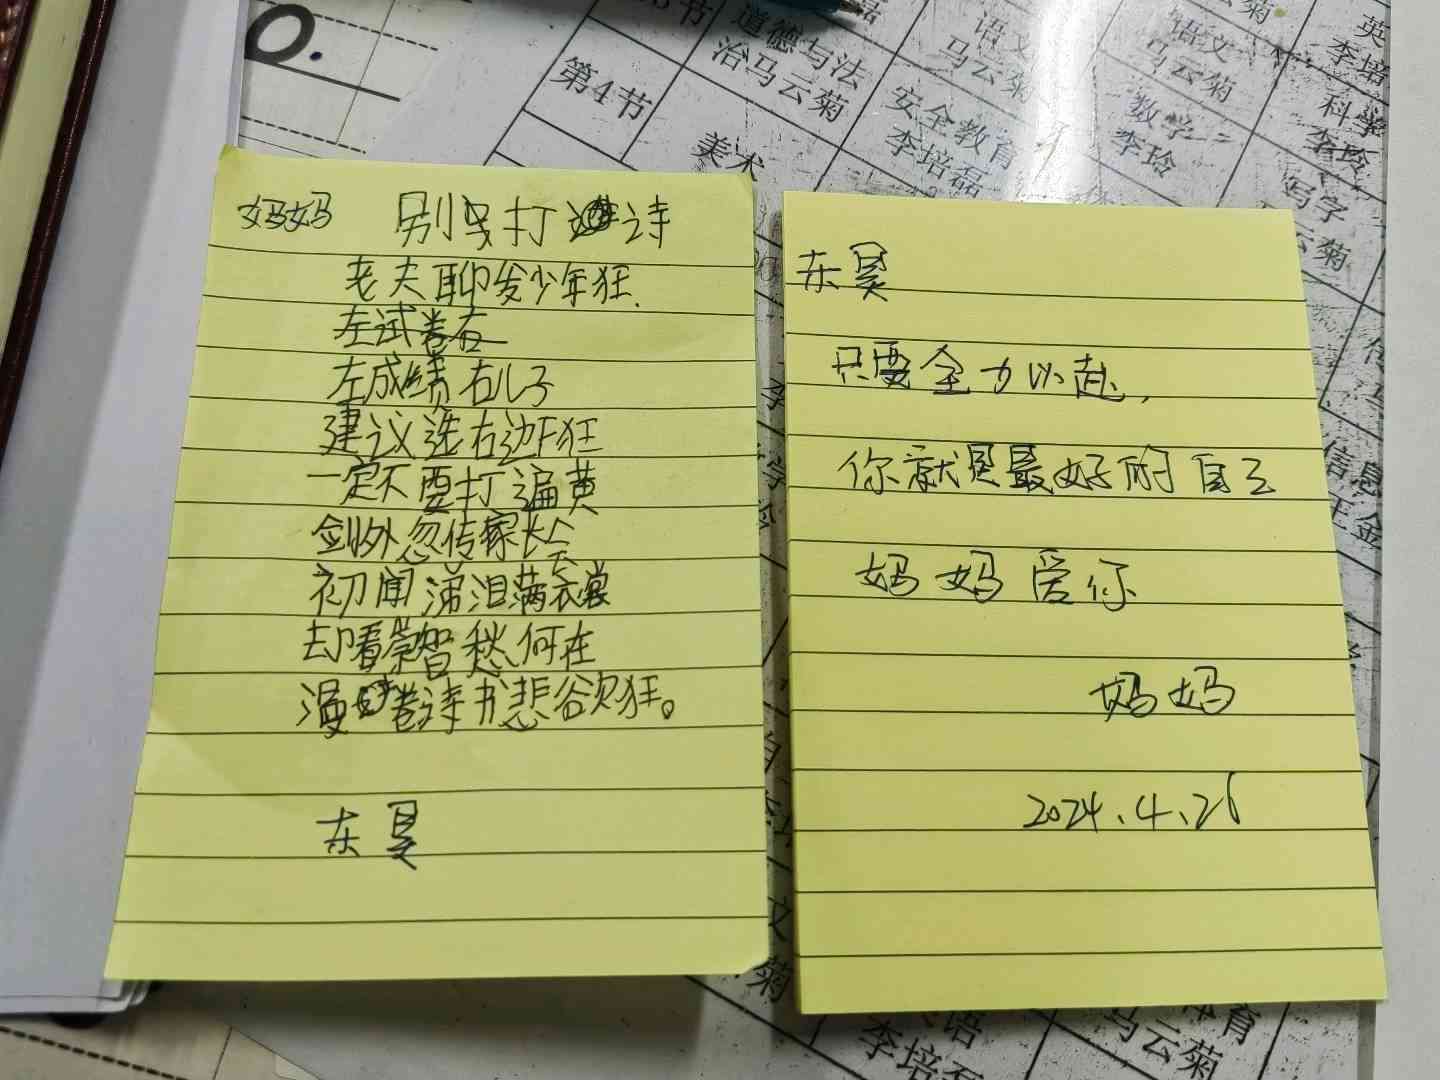 妈妈 别打诗
老夫聊发少年狂.
左试卷右
左成绩右儿子
建议选右边F狂
一定不要打遍黄
剑外忽传家长会
初闻涕泪满衣裳
却看崇智愁何在
漫卷诗书悲欲狂。
东昊
东昊
只要全力以赴,
你就是最好的自己
妈妈爱你
妈妈
2024.4.26
第4节
道德与法
治马云菊
语文
马云菊
语文
马云菊
英
李培
美术
安全教育
李培磊
数学
李玲
科学
李玲
写字
云菊
信息
王金
文
菊
语
李培磊
体育
马云菊